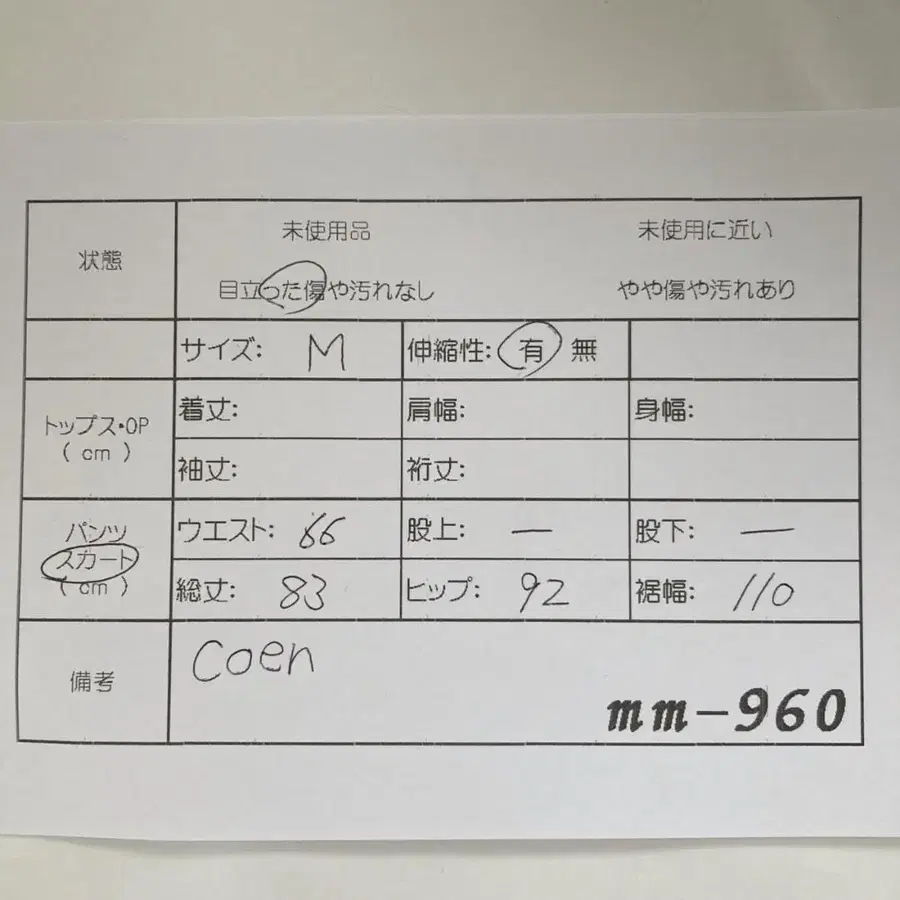 状態
未使用品 未使用に近い
目立った傷や汚れなし やや傷や汚れあり
サイズ: M 伸縮性: 有 無
トップス・OP
( cm )
着丈: 肩幅: 身幅:
袖丈: 裄丈:
パンツ
スカート
( cm )
ウエスト: 66 股上: — 股下: —
総丈: 83 ヒップ: 92 裾幅: 110
備考
coen
mm-960